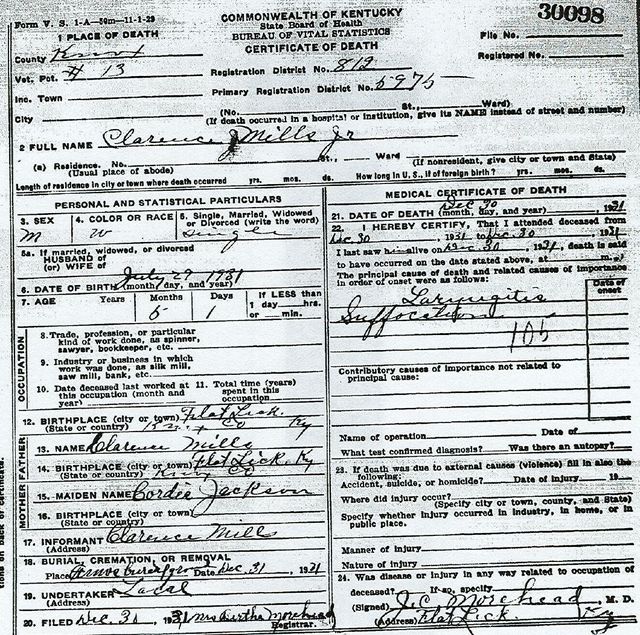 Form V. S. 1-A—50m—11-1-29
COMMONWEALTH OF KENTUCKY
State Board of Health
BUREAU OF VITAL STATISTICS
CERTIFICATE OF DEATH
30098
File No.
Registered No.
1 PLACE OF DEATH
County Knox
Vot. Pct. # 13
Inc. Town
City
Registration District No. 812
Primary Registration District No. 5975
(No. St., Ward)
(If death occurred in a hospital or institution, give its NAME instead of street and number)
2 FULL NAME Clarence J Mills Jr
(a) Residence. No. St., Ward
(Usual place of abode)
(If nonresident, give city or town and State)
Length of residence in city or town where death occurred yrs. mos. ds. How long in U. S., if of foreign birth? yrs. mos. ds.
PERSONAL AND STATISTICAL PARTICULARS
3. SEX
M
4. COLOR OR RACE
W
5. Single, Married, Widowed or Divorced (write the word)
Single
5a. If married, widowed, or divorced
HUSBAND of
(or) WIFE of
6. DATE OF BIRTH (month, day, and year) July 29 1931
7. AGE Years Months Days
5 1
If LESS than 1 day......hrs. or......min.
OCCUPATION
8. Trade, profession, or particular kind of work done, as spinner, sawyer, bookkeeper, etc.
9. Industry or business in which work was done, as silk mill, saw mill, bank, etc.
10. Date deceased last worked at this occupation (month and year)
11. Total time (years) spent in this occupation
12. BIRTHPLACE (city or town) Flat Lick
(State or country) Knox Co Ky
FATHER
13. NAME Clarence Mills
14. BIRTHPLACE (city or town) Flat Lick, Ky
(State or country) Knox Co
MOTHER
15. MAIDEN NAME Cordee Jackson
16. BIRTHPLACE (city or town)
(State or country)
17. INFORMANT Clarence Mills
(Address)
18. BURIAL, CREMATION, OR REMOVAL
Place Date Dec 31, 1931
19. UNDERTAKER Local
(Address)
20. FILED Dec. 30, 1931 Mrs Bertha Morehead
Registrar.
MEDICAL CERTIFICATE OF DEATH
21. DATE OF DEATH (month, day, and year) Dec 30 1931
22. I HEREBY CERTIFY, That I attended deceased from
Dec 30, 1931, to Dec 30, 1931
I last saw him alive on Dec 30, 1931, death is said
to have occurred on the date stated above, at m.
The principal cause of death and related causes of importance in order of onset were as follows:
Date of onset
Laryngitis
Suffocation
105
Contributory causes of importance not related to principal cause:
Name of operation Date of
What test confirmed diagnosis? Was there an autopsy?
23. If death was due to external causes (violence) fill in also the following:
Accident, suicide, or homicide? Date of injury 19
Where did injury occur?
(Specify city or town, county, and State)
Specify whether injury occurred in industry, in home, or in public place.
Manner of injury
Nature of injury
24. Was disease or injury in any way related to occupation of deceased? If so, specify
(Signed) J.C. Morehead, M. D.
(Address) Flat Lick, Ky
tions on back of certificate.